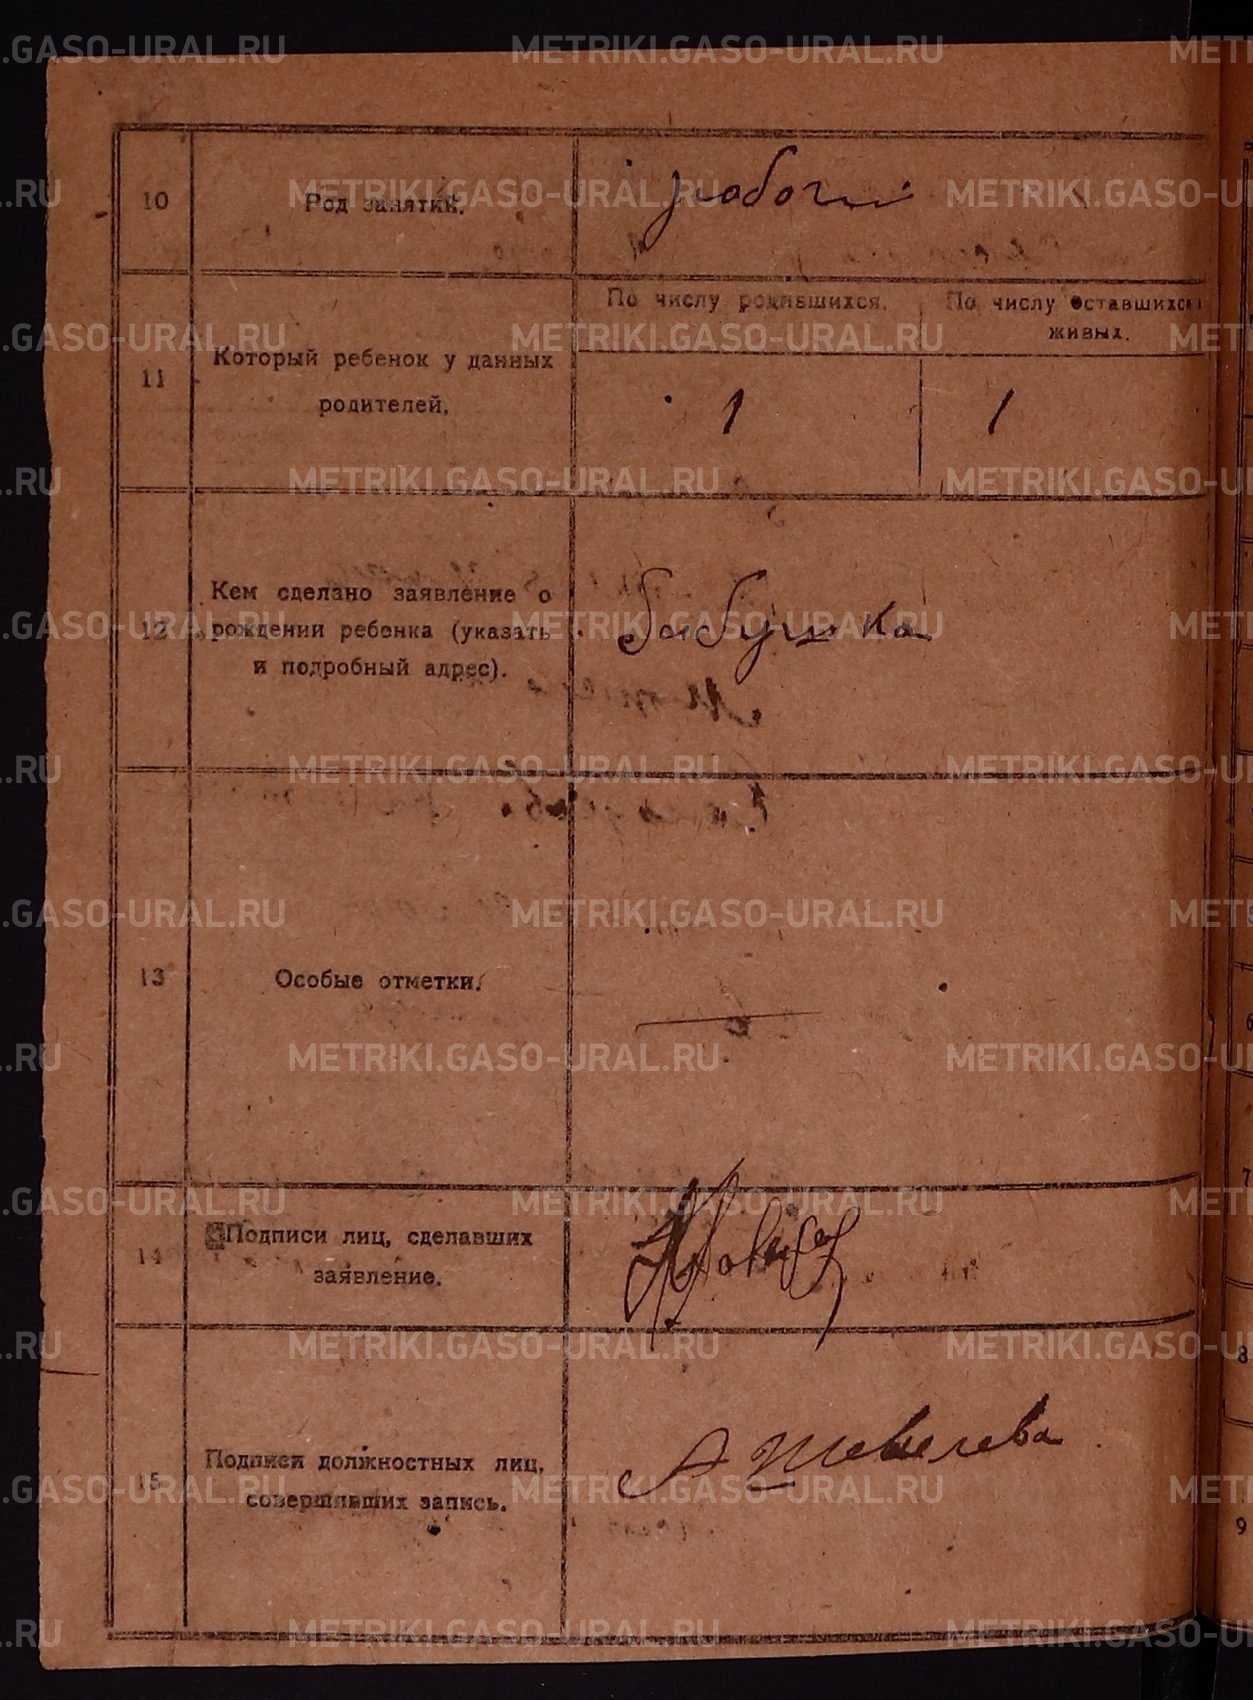 10
Род занятий.
рабочий
11
Который ребенок у данных
родителей.
По числу родившихся.
По числу оставшихся
живых.
1
1
12
Кем сделано заявление о
рождении ребенка (указать
и подробный адрес).
бабушка
13
Особые отметки.
14
Подписи лиц, сделавших
заявление.
15
Подписи должностных лиц,
совершивших запись.
А Шевелева
7
8
9
METRIKI.GASO-URAL.RU